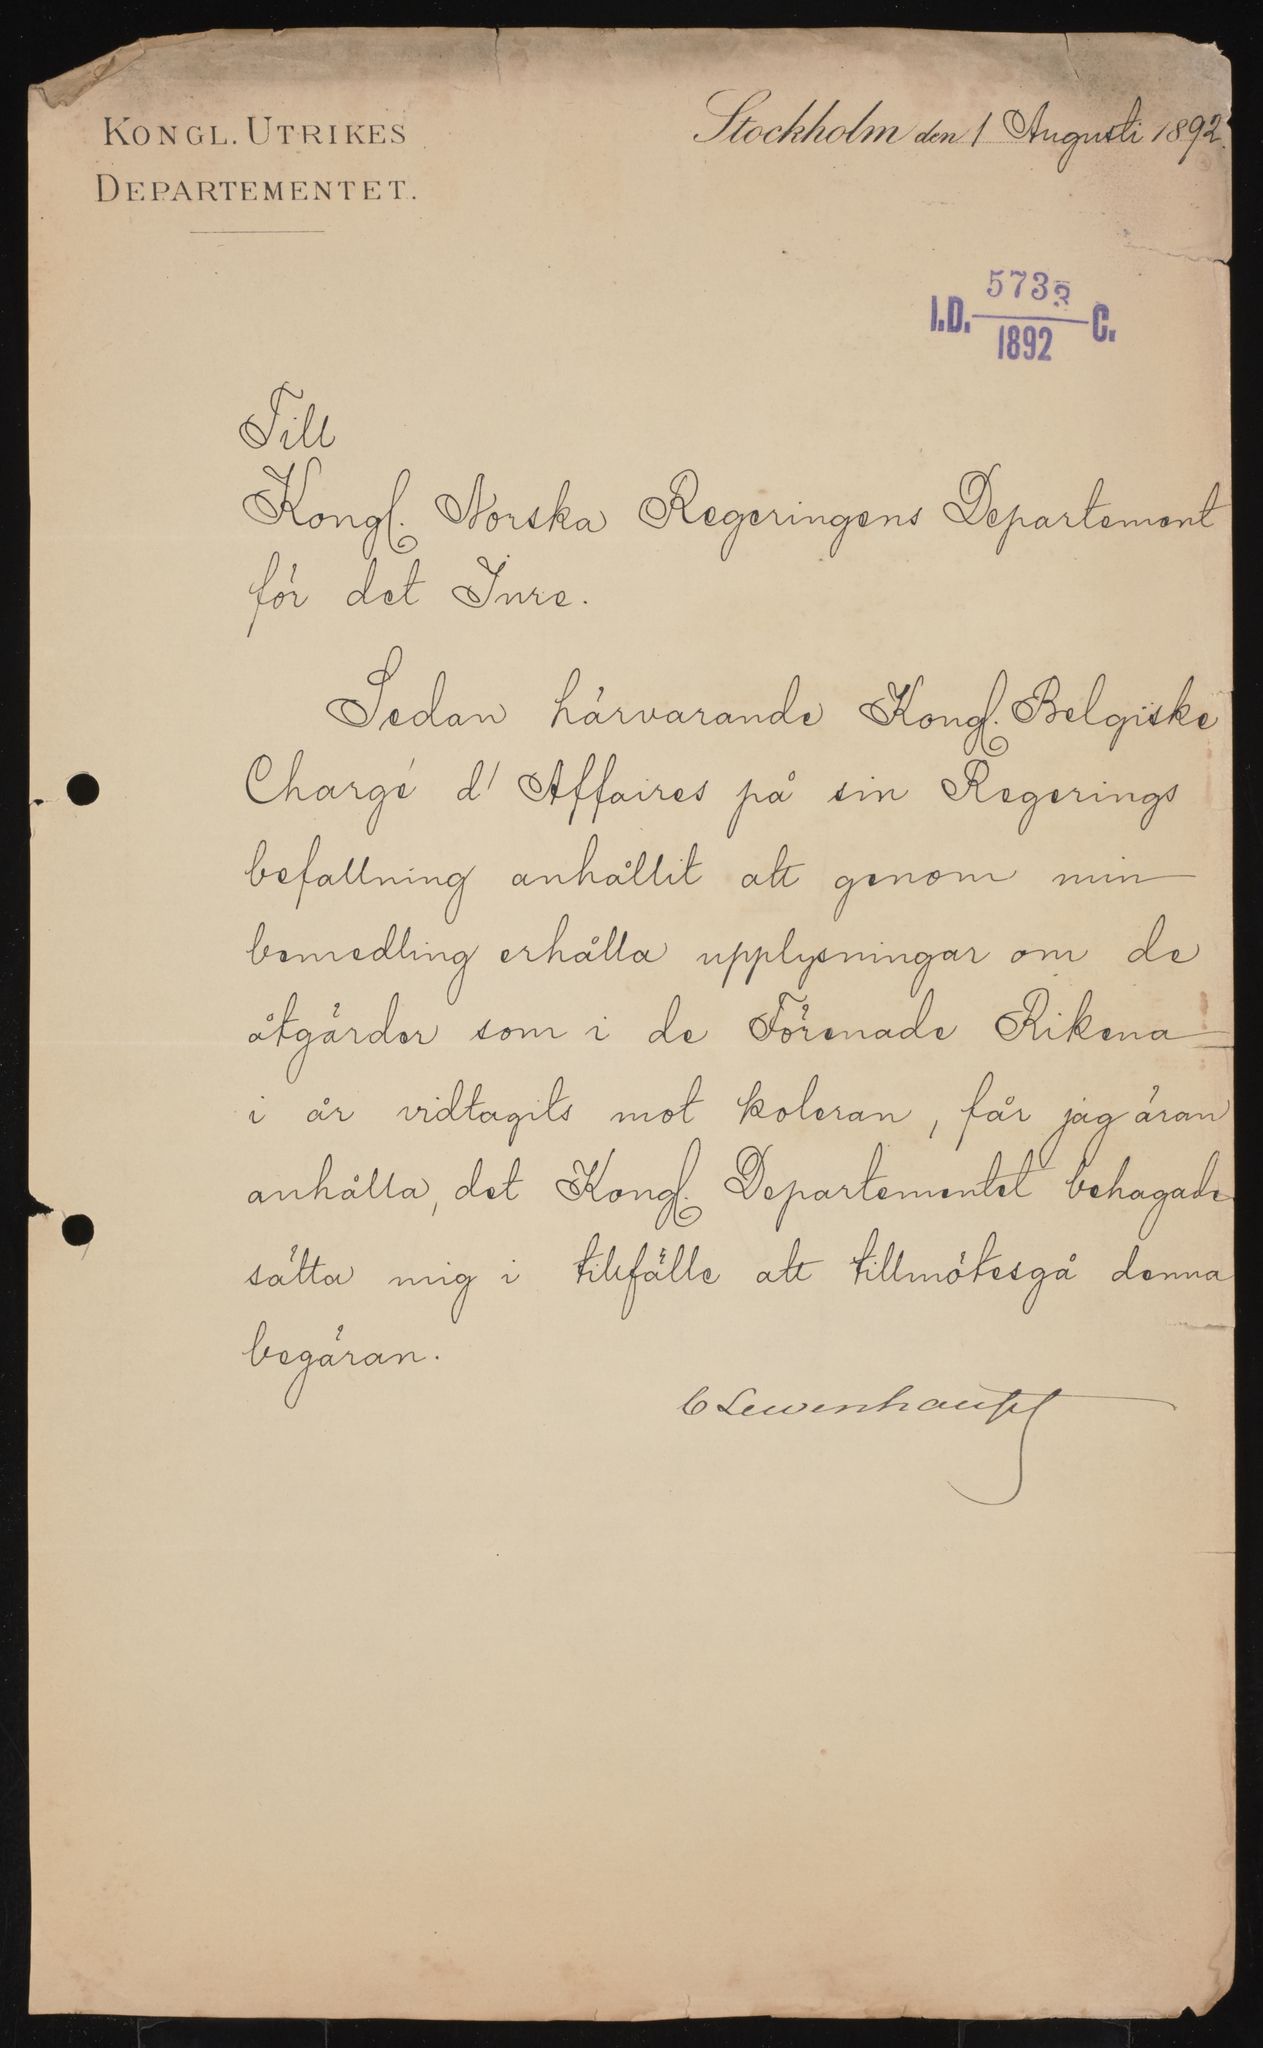 KONGL. UTRIKES
DEPARTEMENTET.
Stockholm den 1 Augusti 1892.
I.D. 5733/1892 C.
Till
Kongl. Norska Regeringens Departement
för det Inre.
Sedan härvarande Kongl. Belgiske
Chargé d'Affaires på sin Regerings
befallning anhållit att genom min
bemedling erhålla upplysningar om de
åtgärder som i de Förenade Rikena
i år vidtagits mot koleran, får jag äran
anhålla, det Kongl. Departementet behagade
sätta mig i tillfälle att tillmötesgå denna
begäran.
C Lewenhaupt